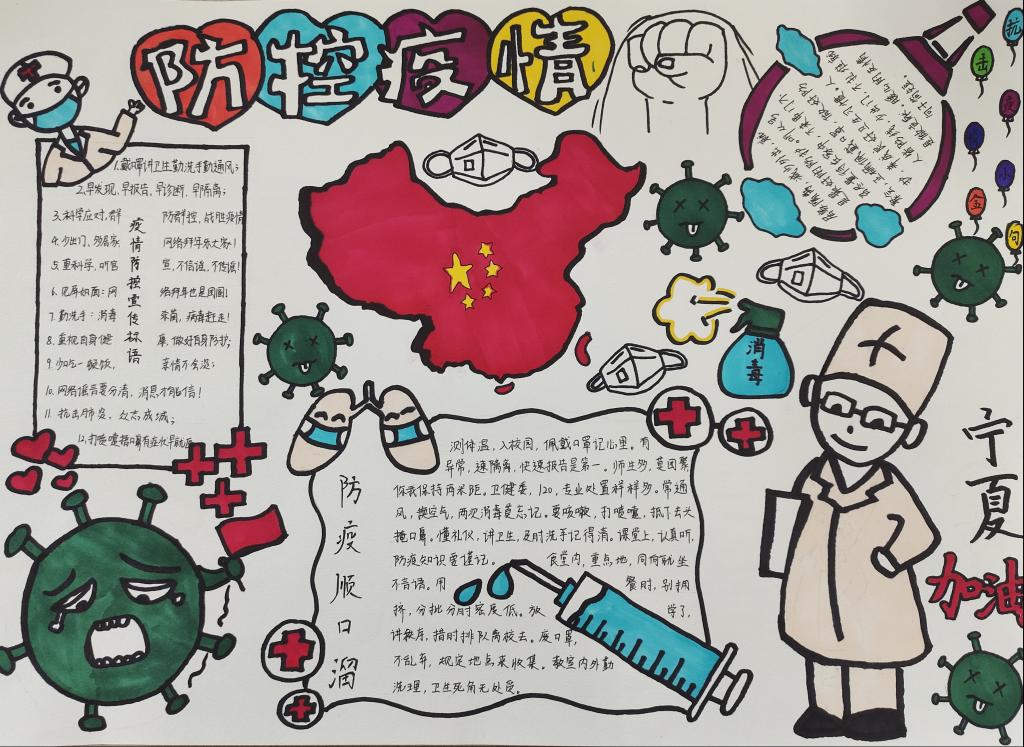 防控疫情
抗击疫情小金句
1.戴口罩讲卫生勤洗手勤通风;
2.早发现,早报告,早诊断,早隔离;
3.科学应对,群防群控,战胜疫情
4.少出门,多居家 网络拜年乐大家!
5.重科学,听官宣,不信谣,不传谣!
6.见屏如面:网络拜年也是团圆!
7.勤洗手:消毒杀菌,病毒赶走!
8.重视自身健康,做好自身防护;
9.少吃一顿饭,亲情不会淡;
10.网络谣言要分清,消息才能信!
11.抗击肺炎,众志成城;
12.打喷嚏捂口鼻有症状早就医
疫情防控宣传标语
消毒
防疫顺口溜
测体温,入校园,佩戴口罩记心里。有
异常,速隔离,快速报告是第一。师生多,莫团聚,
你我保持两米距。卫健委,120,专业处置样样多。常通
风,换空气,两次消毒莫忘记。要咳嗽,打喷嚏,抵下去头
掩口鼻。懂礼仪,讲卫生,及时洗手记得清。课堂上,认真听,
防疫知识要谨记。食堂内,重点地,同向就坐
不言语。用餐时,别拥
挤,分批分时密度低。放学了,
讲秩序,错时排队离校去。废口罩,
不乱弃,规定地点来收集。教室内外勤
洗理,卫生死角无处觅。
宁夏
加油